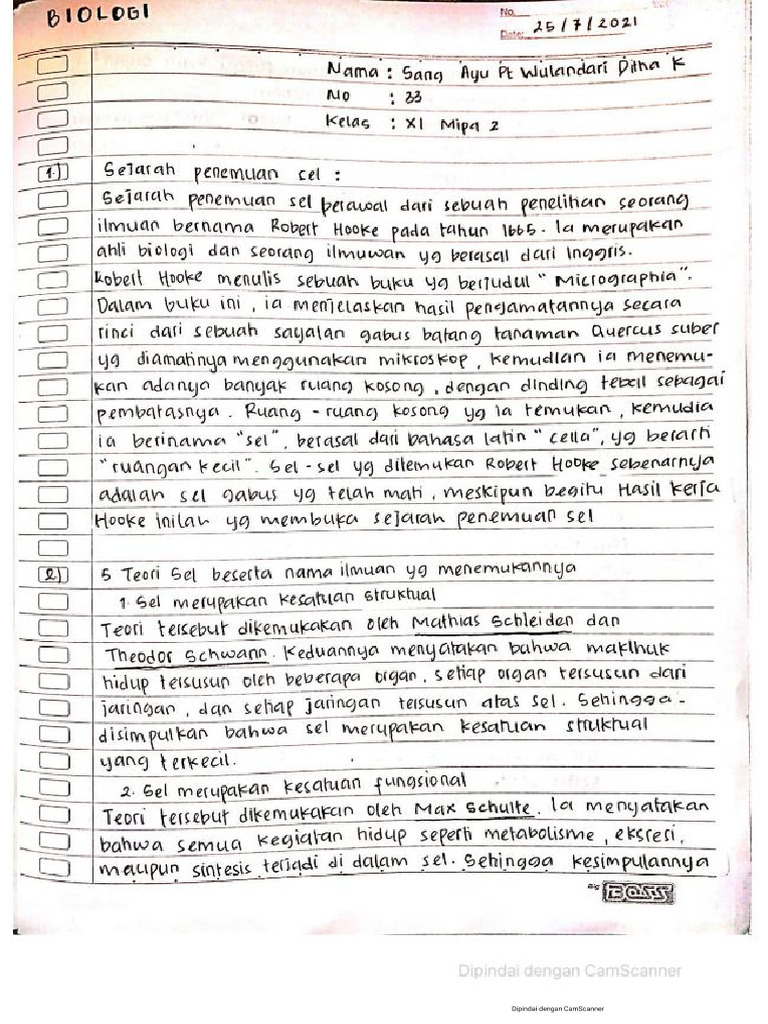 BIOLOGI
No.
Date: 25/7/2021
Nama : Sang Ayu Pt Wulandari Ditha K
No : 33
Kelas : XI Mipa 2
1.) Sejarah penemuan sel :
Sejarah penemuan sel berawal dari sebuah penelitian seorang
ilmuan bernama Robert Hooke pada tahun 1665. Ia merupakan
ahli biologi dan seorang ilmuwan yg berasal dari Inggris.
Robert Hooke menulis sebuah buku yg berjudul "Micrographia".
Dalam buku ini, ia menjelaskan hasil pengamatannya secara
rinci dari sebuah sayatan gabus batang tanaman Quercus suber
yg diamatinya menggunakan mikroskop, kemudian ia menemu-
kan adanya banyak ruang kosong, dengan dinding tebal sebagai
pembatasnya. Ruang-ruang kosong yg ia temukan, kemudia
ia berinama "sel", berasal dari bahasa latin "cella", yg berarti
"ruangan kecil". Sel-sel yg ditemukan Robert Hooke sebenarnya
adalah sel gabus yg telah mati, meskipun begitu Hasil kerja
Hooke inilah yg membuka sejarah penemuan sel
2.) 5 Teori Sel beserta nama ilmuan yg menemukannya
1. Sel merupakan kesatuan struktual
Teori tersebut dikemukakan oleh Mathias Schleiden dan
Theodor Schwann. Keduannya menyatakan bahwa maklhuk
hidup tersusun oleh beberapa organ, setiap organ tersusun dari
jaringan, dan setiap jaringan tersusun atas sel. Sehingga-
disimpulkan bahwa sel merupakan kesatuan struktual
yang terkecil.
2. Sel merupakan kesatuan fungsional
Teori tersebut dikemukakan oleh Max Schulte. Ia menyatakan
bahwa semua kegiatan hidup seperti metabolisme, eksresi,
maupun sintesis terjadi di dalam sel. Sehingga kesimpulannya
BOSS
Dipindai dengan CamScanner
Dipindai dengan CamScanner